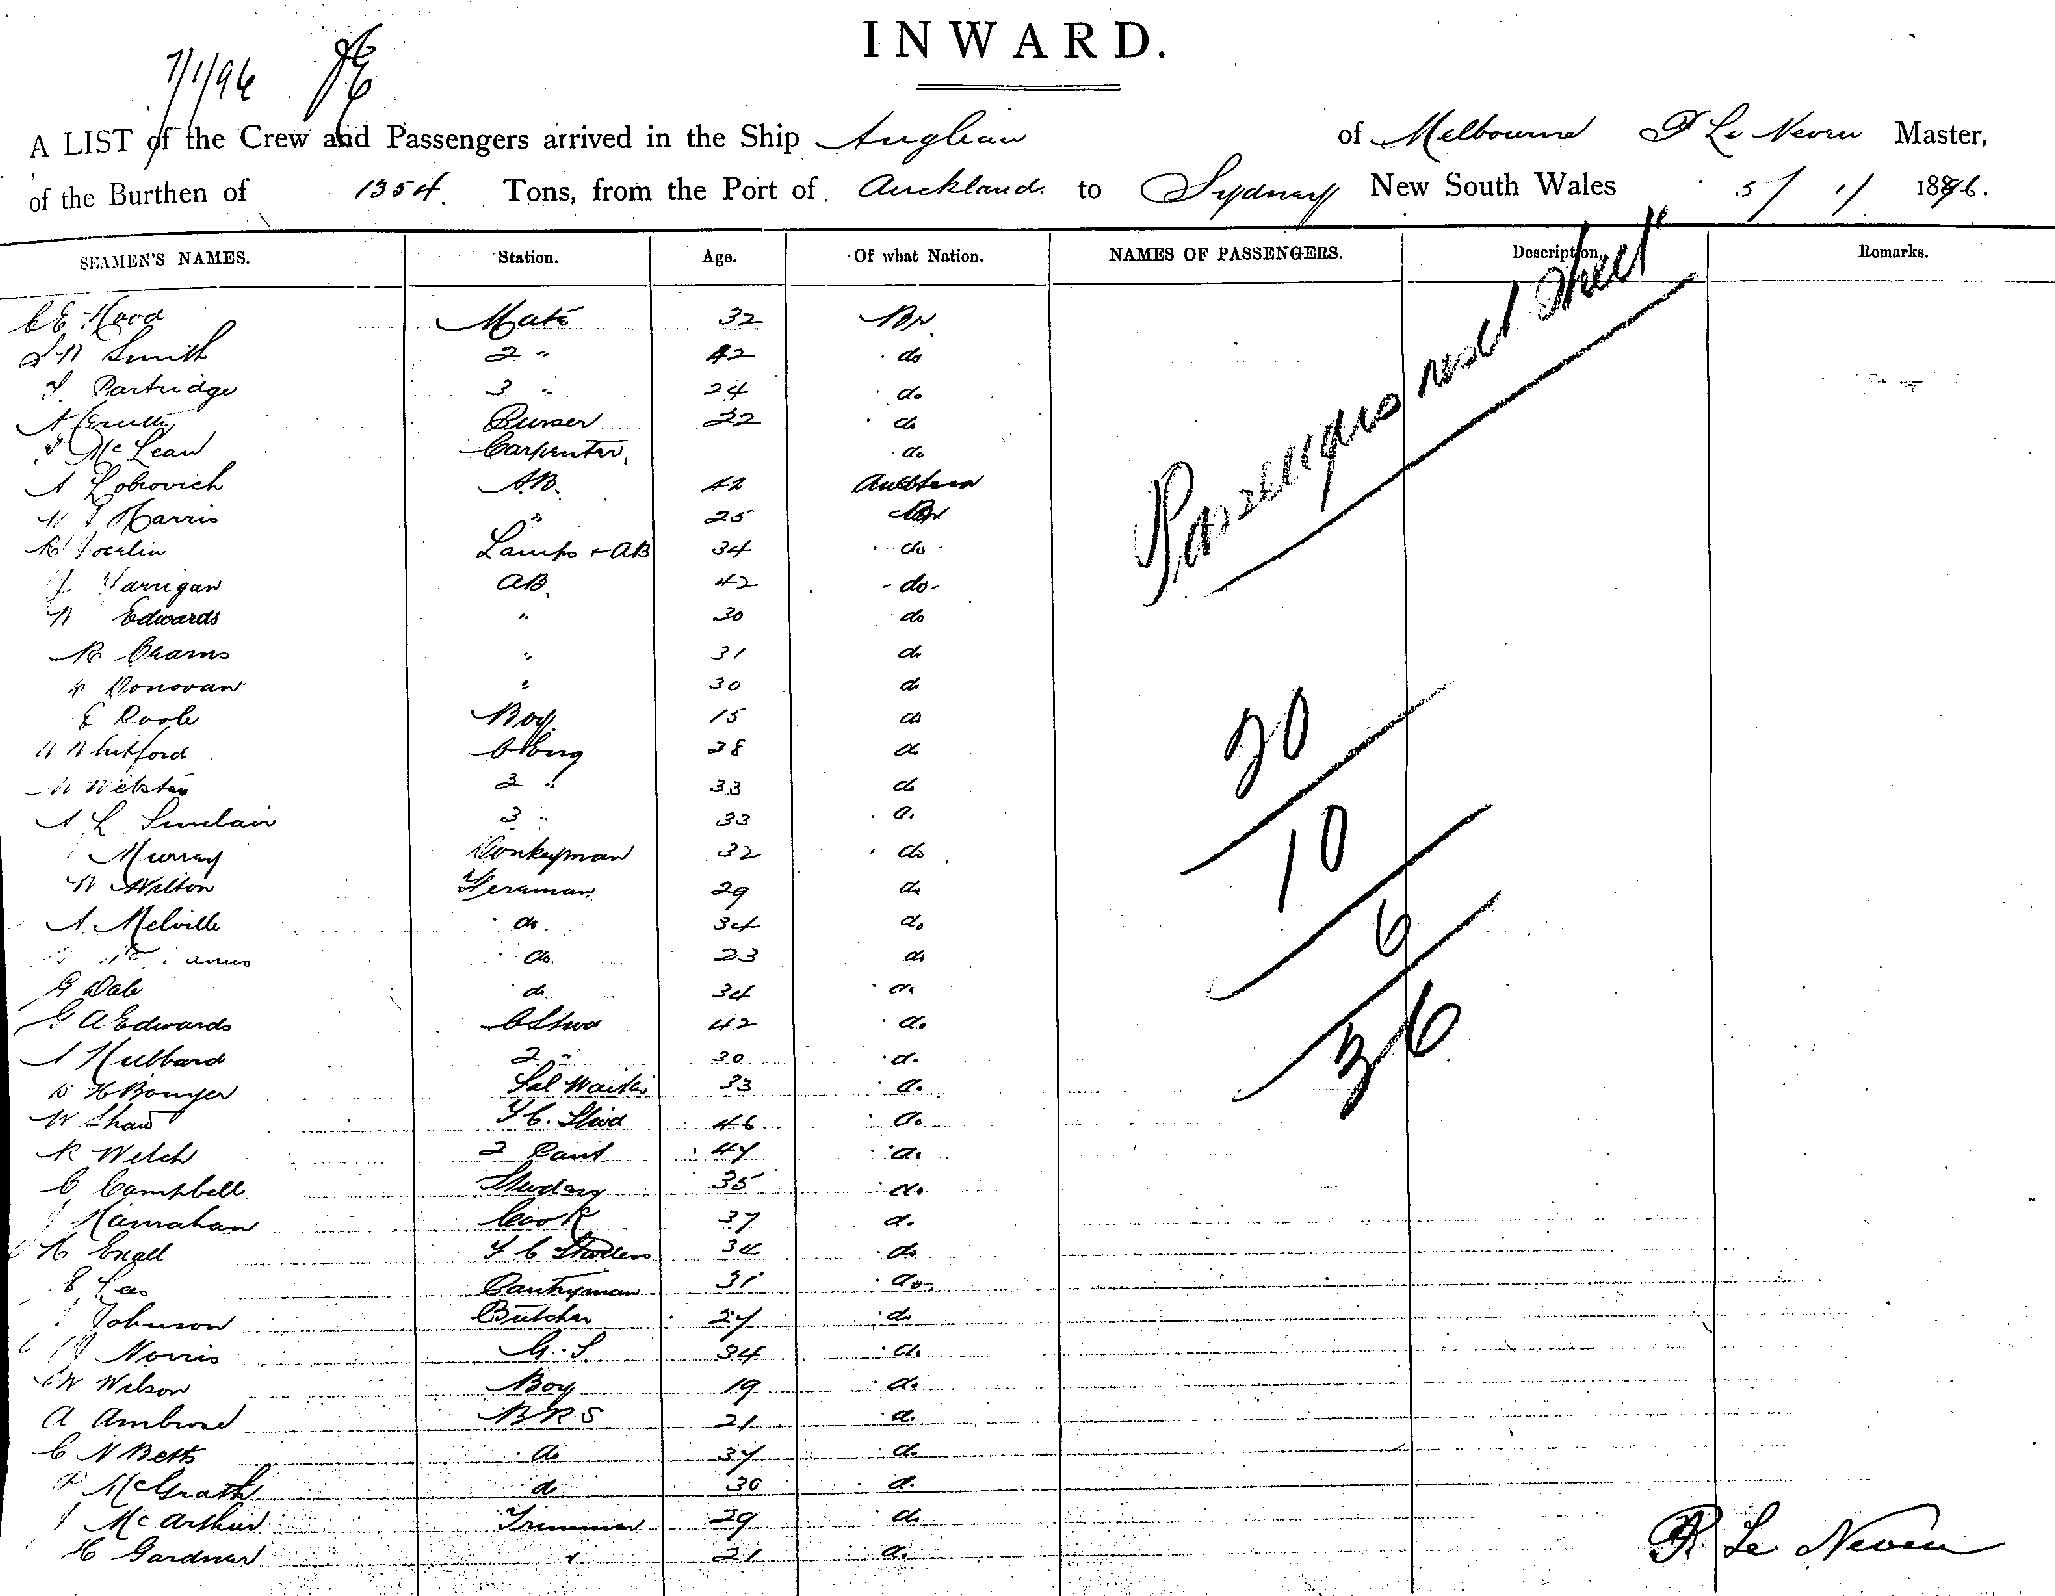 INWARD.
7/1/96
A LIST of the Crew and Passengers arrived in the Ship Anglian of Melbourne Le Neveu Master,
of the Burthen of 1354 Tons, from the Port of Auckland to Sydney New South Wales 5/1/ 1896.
SEAMEN'S NAMES. Station. Age. Of what Nation. NAMES OF PASSENGERS. Description. Remarks.
Passengers next sheet
C E Hood Mate 32 Br
Smith 2 " 42 do
Partridge 3 " 24 do
A Purser 22 do
McLean Carpenter do
A Lobrovich A.B. 42 Austrian
Harris " 25 Br
Lamps + AB 34 do
AB 42 do
W Edwards " 30 do
R " 31 do
Donovan " 30 do
E Poole Boy 15 do
Whitford 28 do
W Webster 2 " 33 do
A L Sinclair 3 " 33 do
Murray Donkeyman 32 do
W Wilton Fireman 29 do
A. Melville do 34 do
do 23 do
G Dale do 34 do
G A Edwards C Stwd 42 do
A Hubbard 2 " 30 do
H Bonyer Sal Waiter 33 do
W Shaw F C. Stwd 46 do
R Welch 2 Pant 47 do
C Campbell Stwdess 35 do
Hanrahan Cook 37 do
34 do
E Lee Pantryman 31 do
Johnson Butcher 27 do
Norris G. S. 34 do
W Wilson Boy 19 do
A Ambrose B R S 21 do
C N Betts do 37 do
P McGrath do 30 do
McArthur Trimmer 29 do
H Gardner " 21 do
20
10
6
36
Le Neveu